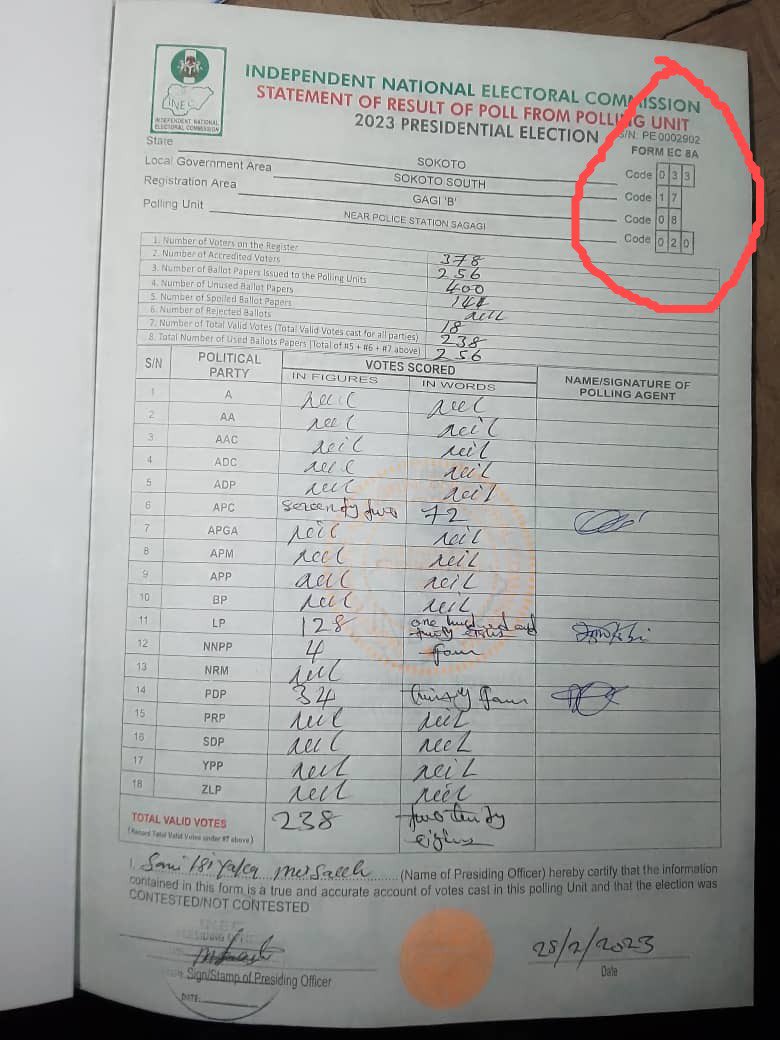 INEC
INDEPENDENT NATIONAL
ELECTORAL COMMISSION
INDEPENDENT NATIONAL ELECTORAL COMMISSION
STATEMENT OF RESULT OF POLL FROM POLLING UNIT
2023 PRESIDENTIAL ELECTION
S/N: PE0002902
FORM EC 8A
State SOKOTO Code 033
Local Government Area SOKOTO SOUTH Code 17
Registration Area GAGI 'B' Code 08
Polling Unit NEAR POLICE STATION SAGAGI Code 020
1. Number of Voters on the Register 378
2. Number of Accredited Voters 256
3. Number of Ballot Papers Issued to the Polling Units 400
4. Number of Unused Ballot Papers 144
5. Number of Spoiled Ballot Papers nill
6. Number of Rejected Ballots 18
7. Number of Total Valid Votes (Total Valid Votes cast for all parties) 238
8. Total Number of Used Ballots Papers (Total of #5 + #6 + #7 above) 256
S/N POLITICAL PARTY VOTES SCORED NAME/SIGNATURE OF POLLING AGENT
IN FIGURES IN WORDS
1 A nil nil
2 AA nil nil
3 AAC nil nil
4 ADC nil nil
5 ADP nil nil
6 APC seventy two 72
7 APGA nil nil
8 APM nil nil
9 APP nil nil
10 BP nil nil
11 LP 128 one hundred and
12 NNPP 4 four
13 NRM nil
14 PDP 34 thirty four
15 PRP nil nil
16 SDP nil nil
17 YPP nil nil
18 ZLP nil nil
TOTAL VALID VOTES 238
(Record Total Valid Votes under #7 above)
I, Sani (Name of Presiding Officer) hereby certify that the information
contained in this form is a true and accurate account of votes cast in this polling Unit and that the election was
CONTESTED/NOT CONTESTED
Sign/Stamp of Presiding Officer
DATE:
25/2/2023
Date